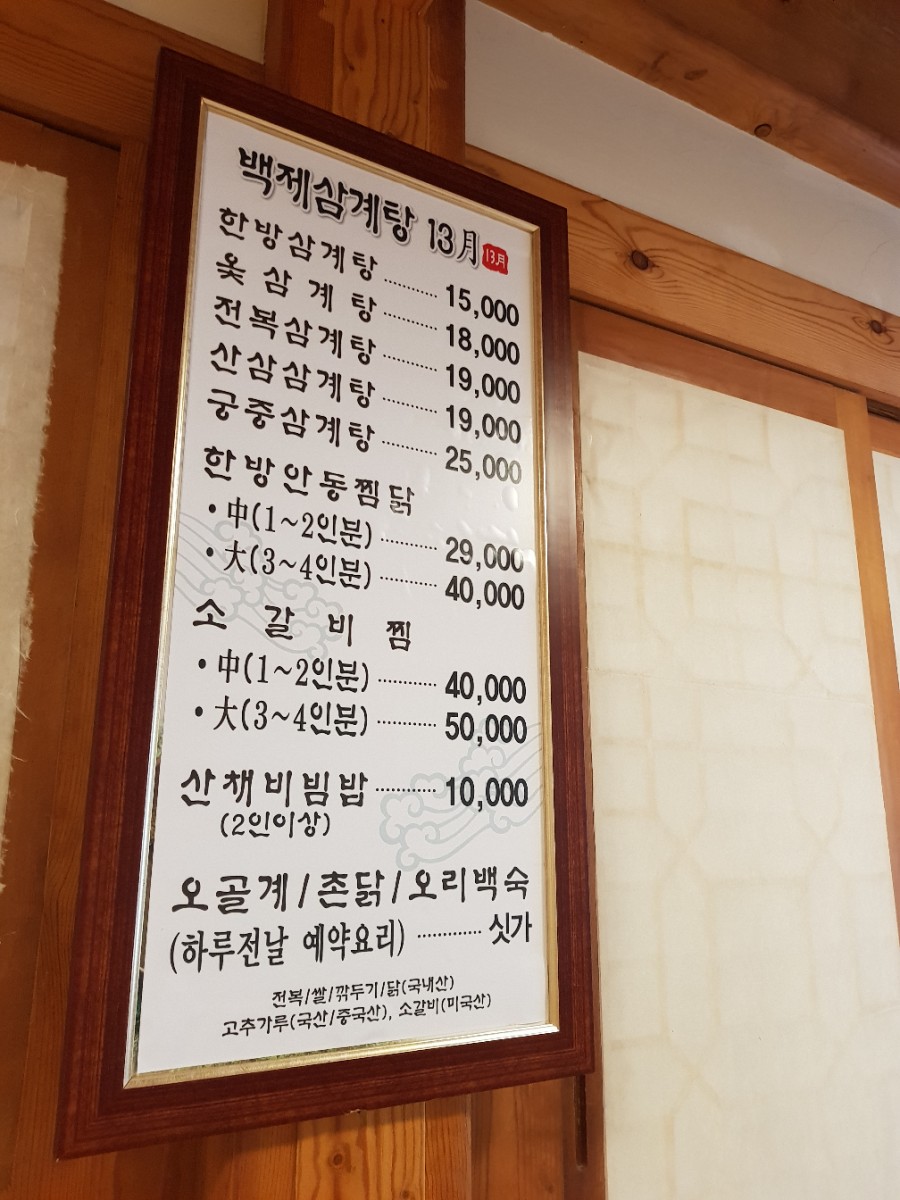 백제삼계탕 13月 13月
한방삼계탕 ........... 15,000
옻삼계탕 ........... 18,000
전복삼계탕 ........... 19,000
산삼삼계탕 ........... 19,000
궁중삼계탕 ........... 25,000
한방안동찜닭
·中(1~2인분) ........... 29,000
·大(3~4인분) ........... 40,000
소갈비찜
·中(1~2인분) ........... 40,000
·大(3~4인분) ........... 50,000
산채비빔밥 ........... 10,000
(2인이상)
오골계/촌닭/오리백숙
(하루전날 예약요리) ............ 싯가
전복/쌀/깎두기/닭(국내산)
고추가루(국산/중국산), 소갈비(미국산)